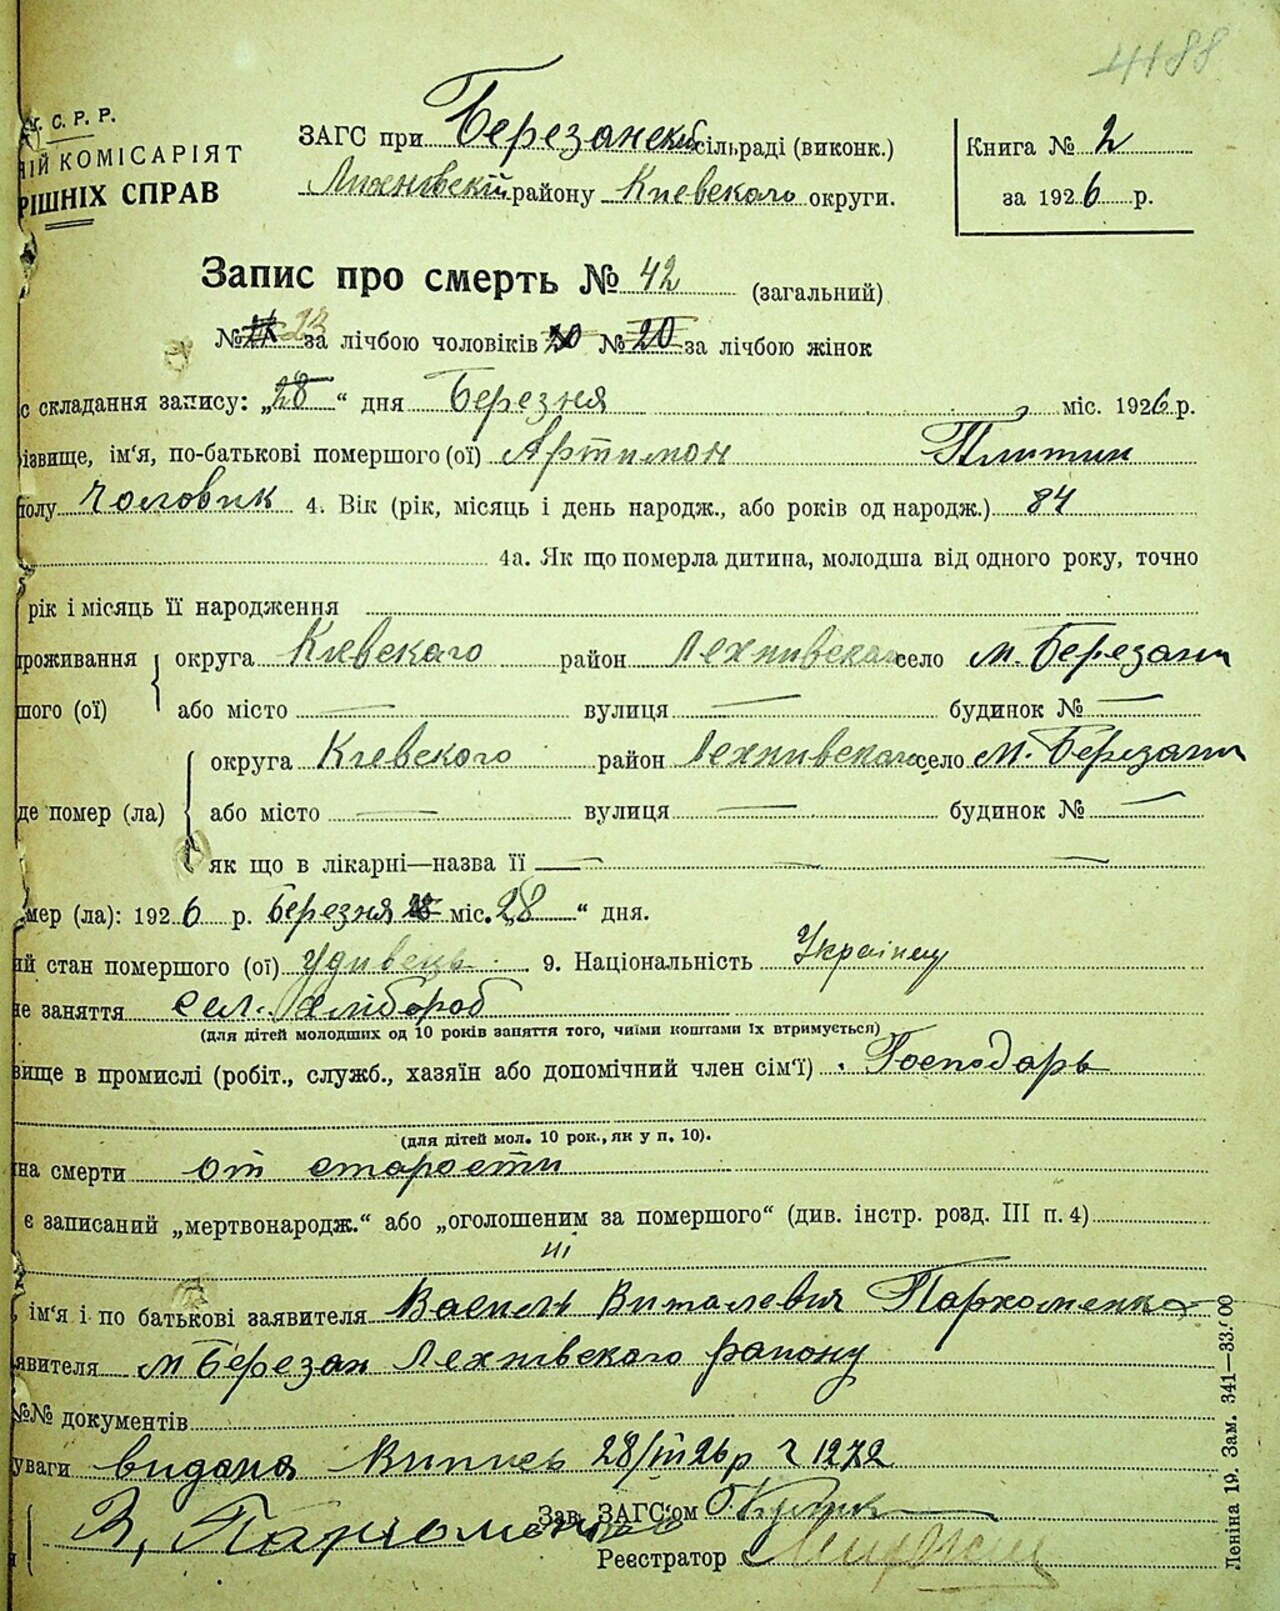 4188
У. С. Р. Р.
ІЙ КОМІСАРІЯТ
РІШНІХ СПРАВ
ЗАГС при Березанскій сільраді (виконк.)
району Киевского округи.
Книга № 2
за 1926 р.
Запис про смерть № 42 (загальний)
№ 23 за лічбою чоловіків № 20 за лічбою жінок
с складання запису: „28“ дня Березня міс. 1926 р.
ізвище, ім'я, по-батькові помершого (ої) Артимон
полу Чоловик 4. Вік (рік, місяць і день народж., або років од народж.) 84
4а. Як що померла дитина, молодша від одного року, точно
рік і місяць її народження
роживання округа Киевского район село м. Березань
шого (ої) або місто — вулиця — будинок № —
округа Киевского район село м. Березань
де помер (ла) або місто — вулиця — будинок № —
як що в лікарні—назва її —
мер (ла): 1926 р. Березня міс. „28“ дня.
ий стан помершого (ої) Удивець 9. Національність Українец
не заняття сел. хлібороб
(для дітей молодших од 10 років заняття того, чиїми коштами їх втримується)
вище в промислі (робіт., служб., хазяїн або допомічний член сім'ї) Господарь
(для дітей мол. 10 рок., як у п. 10).
на смерти от старости
є записаний „мертвонародж.“ або „оголошеним за помершого“ (див. інстр. розд. III п. 4)
ні
ім'я і по батькові заявителя Василь Виталевич Пархоменко
явителя м Березан Лехнівского району
№№ документів
уваги видана Випись 28/III 26 р ч 1272
В. Пархоменко
Зав. ЗАГС'ом
Реєстратор
Леніна 19. Зам. 341—33.000